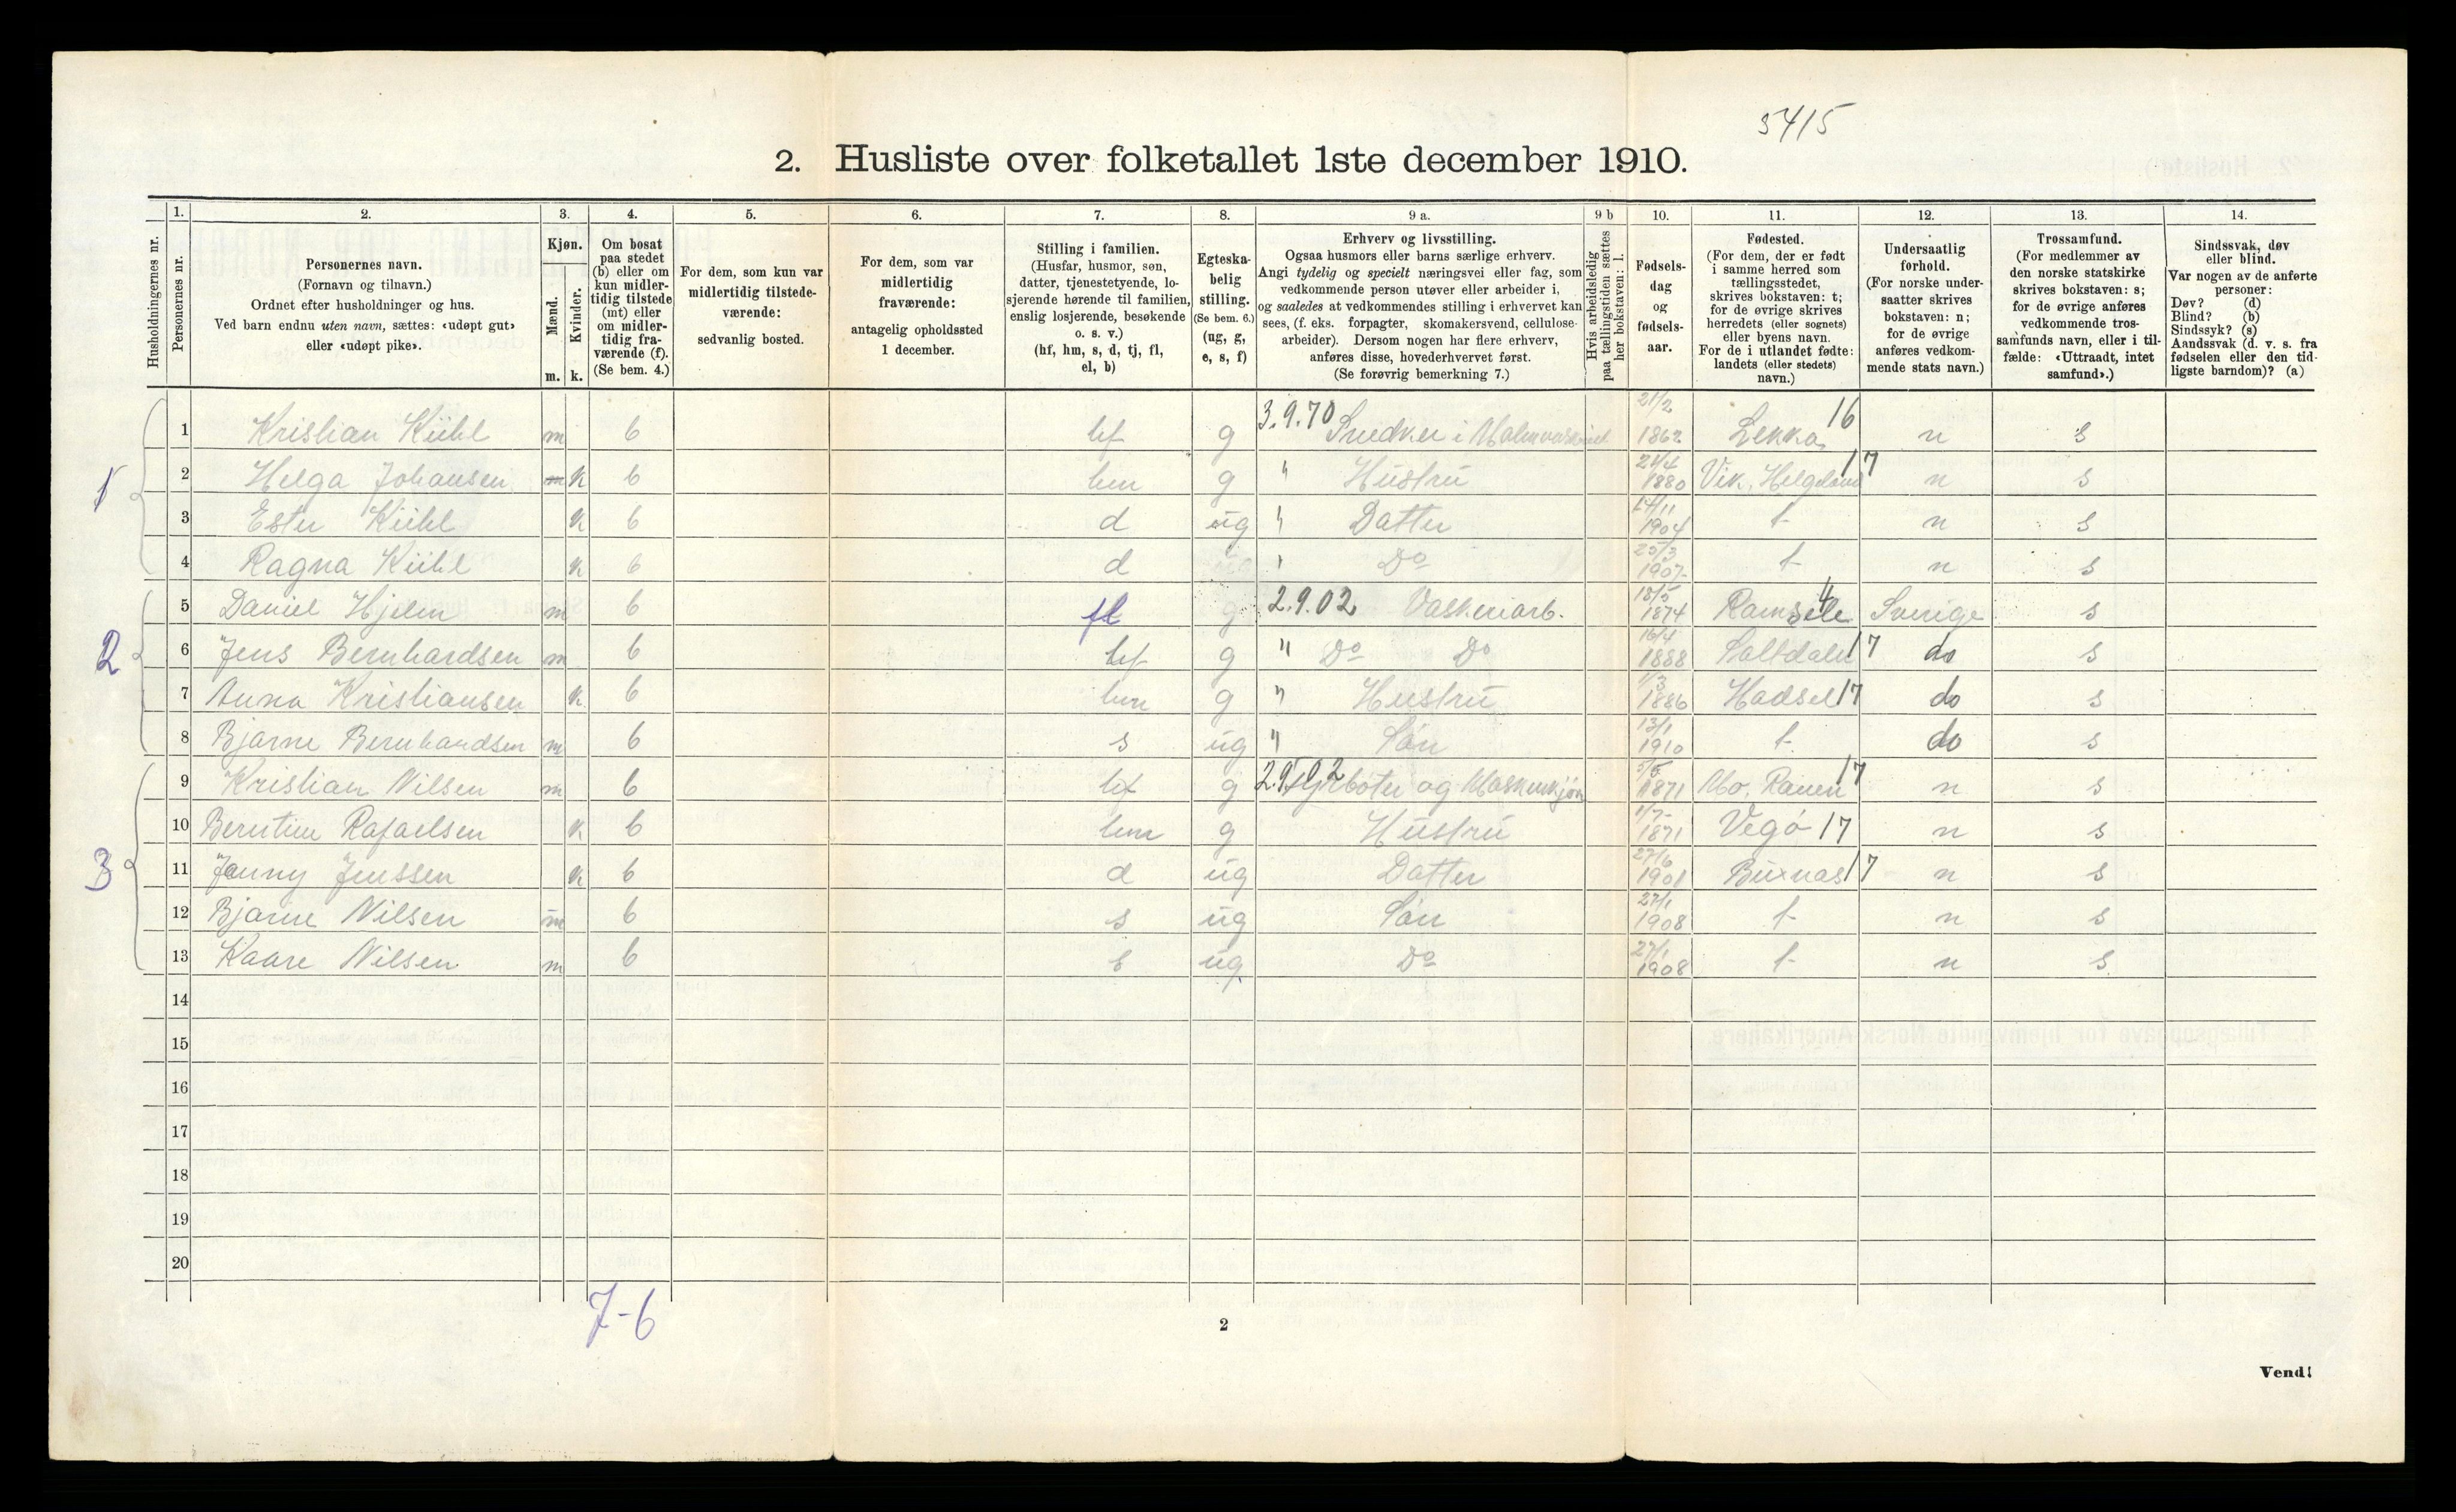 5415
2. Husliste over folketallet 1ste december 1910.
Husholdningernes nr.
1.
Personernes nr.
2.
Personernes navn.
(Fornavn og tilnavn.)
Ordnet efter husholdninger og hus.
Ved barn endnu uten navn, sættes: «udøpt gut»
eller «udøpt pike».
3.
Kjøn.
Mænd.
Kvinder.
m. k.
4.
Om bosat
paa stedet
(b) eller om
kun midler-
tidig tilstede
(mt) eller
om midler-
tidig fra-
værende (f).
(Se bem. 4.)
5.
For dem, som kun var
midlertidig tilstede-
værende:
sedvanlig bosted.
6.
For dem, som var
midlertidig
fraværende:
antagelig opholdssted
1 december.
7.
Stilling i familien.
(Husfar, husmor, søn,
datter, tjenestetyende, lo-
sjerende hørende til familien,
enslig losjerende, besøkende
o. s. v.)
(hf, hm, s, d, tj, fl,
el, b)
8.
Egteska-
belig
stilling.
(Se bem. 6.)
(ug, g,
e, s, f)
9 a.
Erhverv og livsstilling.
Ogsaa husmors eller barns særlige erhverv.
Angi tydelig og specielt næringsvei eller fag, som
vedkommende person utøver eller arbeider i,
og saaledes at vedkommendes stilling i erhvervet kan
sees, (f. eks. forpagter, skomakersvend, cellulose-
arbeider). Dersom nogen har flere erhverv,
anføres disse, hovederhvervet først.
(Se forøvrig bemerkning 7.)
9 b
Hvis arbeidsledig
paa tællingstiden sættes
her bokstaven: l.
10.
Fødsels-
dag
og
fødsels-
aar.
11.
Fødested.
(For dem, der er født
i samme herred som
tællingsstedet,
skrives bokstaven: t;
for de øvrige skrives
herredets (eller sognets)
eller byens navn.
For de i utlandet fødte:
landets (eller stedets)
navn.)
12.
Undersaatlig
forhold.
(For norske under-
saatter skrives
bokstaven: n;
for de øvrige
anføres vedkom-
mende stats navn.)
13.
Trossamfund.
(For medlemmer av
den norske statskirke
skrives bokstaven: s;
for de øvrige anføres
vedkommende tros-
samfunds navn, eller i til-
fælde: «Uttraadt, intet
samfund».)
14.
Sindssvak, døv
eller blind.
Var nogen av de anførte
personer:
Døv? (d)
Blind? (b)
Sindssyk? (s)
Aandssvak (d. v. s. fra
fødselen eller den tid-
ligste barndom)? (a)
1 1 Kristian Kühl m b hf g 3.9.70 Snedker i 21/2 1862 Lekka 16 n s
2 Helga Johansen k b hm g " Hustru 21/4 1880 Vik, Helgeland 17 n s
3 Ester Kühl k b d ug " Datter 14/11 1904 t n s
4 Ragna Kühl k b d ug " Do 25/3 1907 t n s
2 5 Daniel Hjelm m b fl g 2.9.02 Vaskeriarb. 18/5 1874 Ramsele 4 Sverige s
6 Jens Bernhardsen m b hf g " Do Do 16/4 1888 Saltdalen 17 do s
7 Anna Kristiansen k b hm g " Hustru 1/3 1886 Hadsel 17 do s
8 Bjarne Bernhardsen m b s ug " Søn 13/1 1910 t do s
3 9 Kristian Nilsen m b hf g 2.9.02 Fyrbøter og Maskinkjører 5/5 1871 Mo, Ranen 17 n s
10 Berntine Rafaelsen k b hm g Hustru 1/7 1871 Vegø 17 n s
11 Jenny Jenssen k b d ug Datter 27/6 1901 Buxnas 17 n s
12 Bjarne Nilsen m b s ug Søn 27/1 1908 t n s
13 Kaare Nilsen m b ug Do 27/1 1908 t n s
14
15
16
17
18
19
20
7-6
2
Vend!